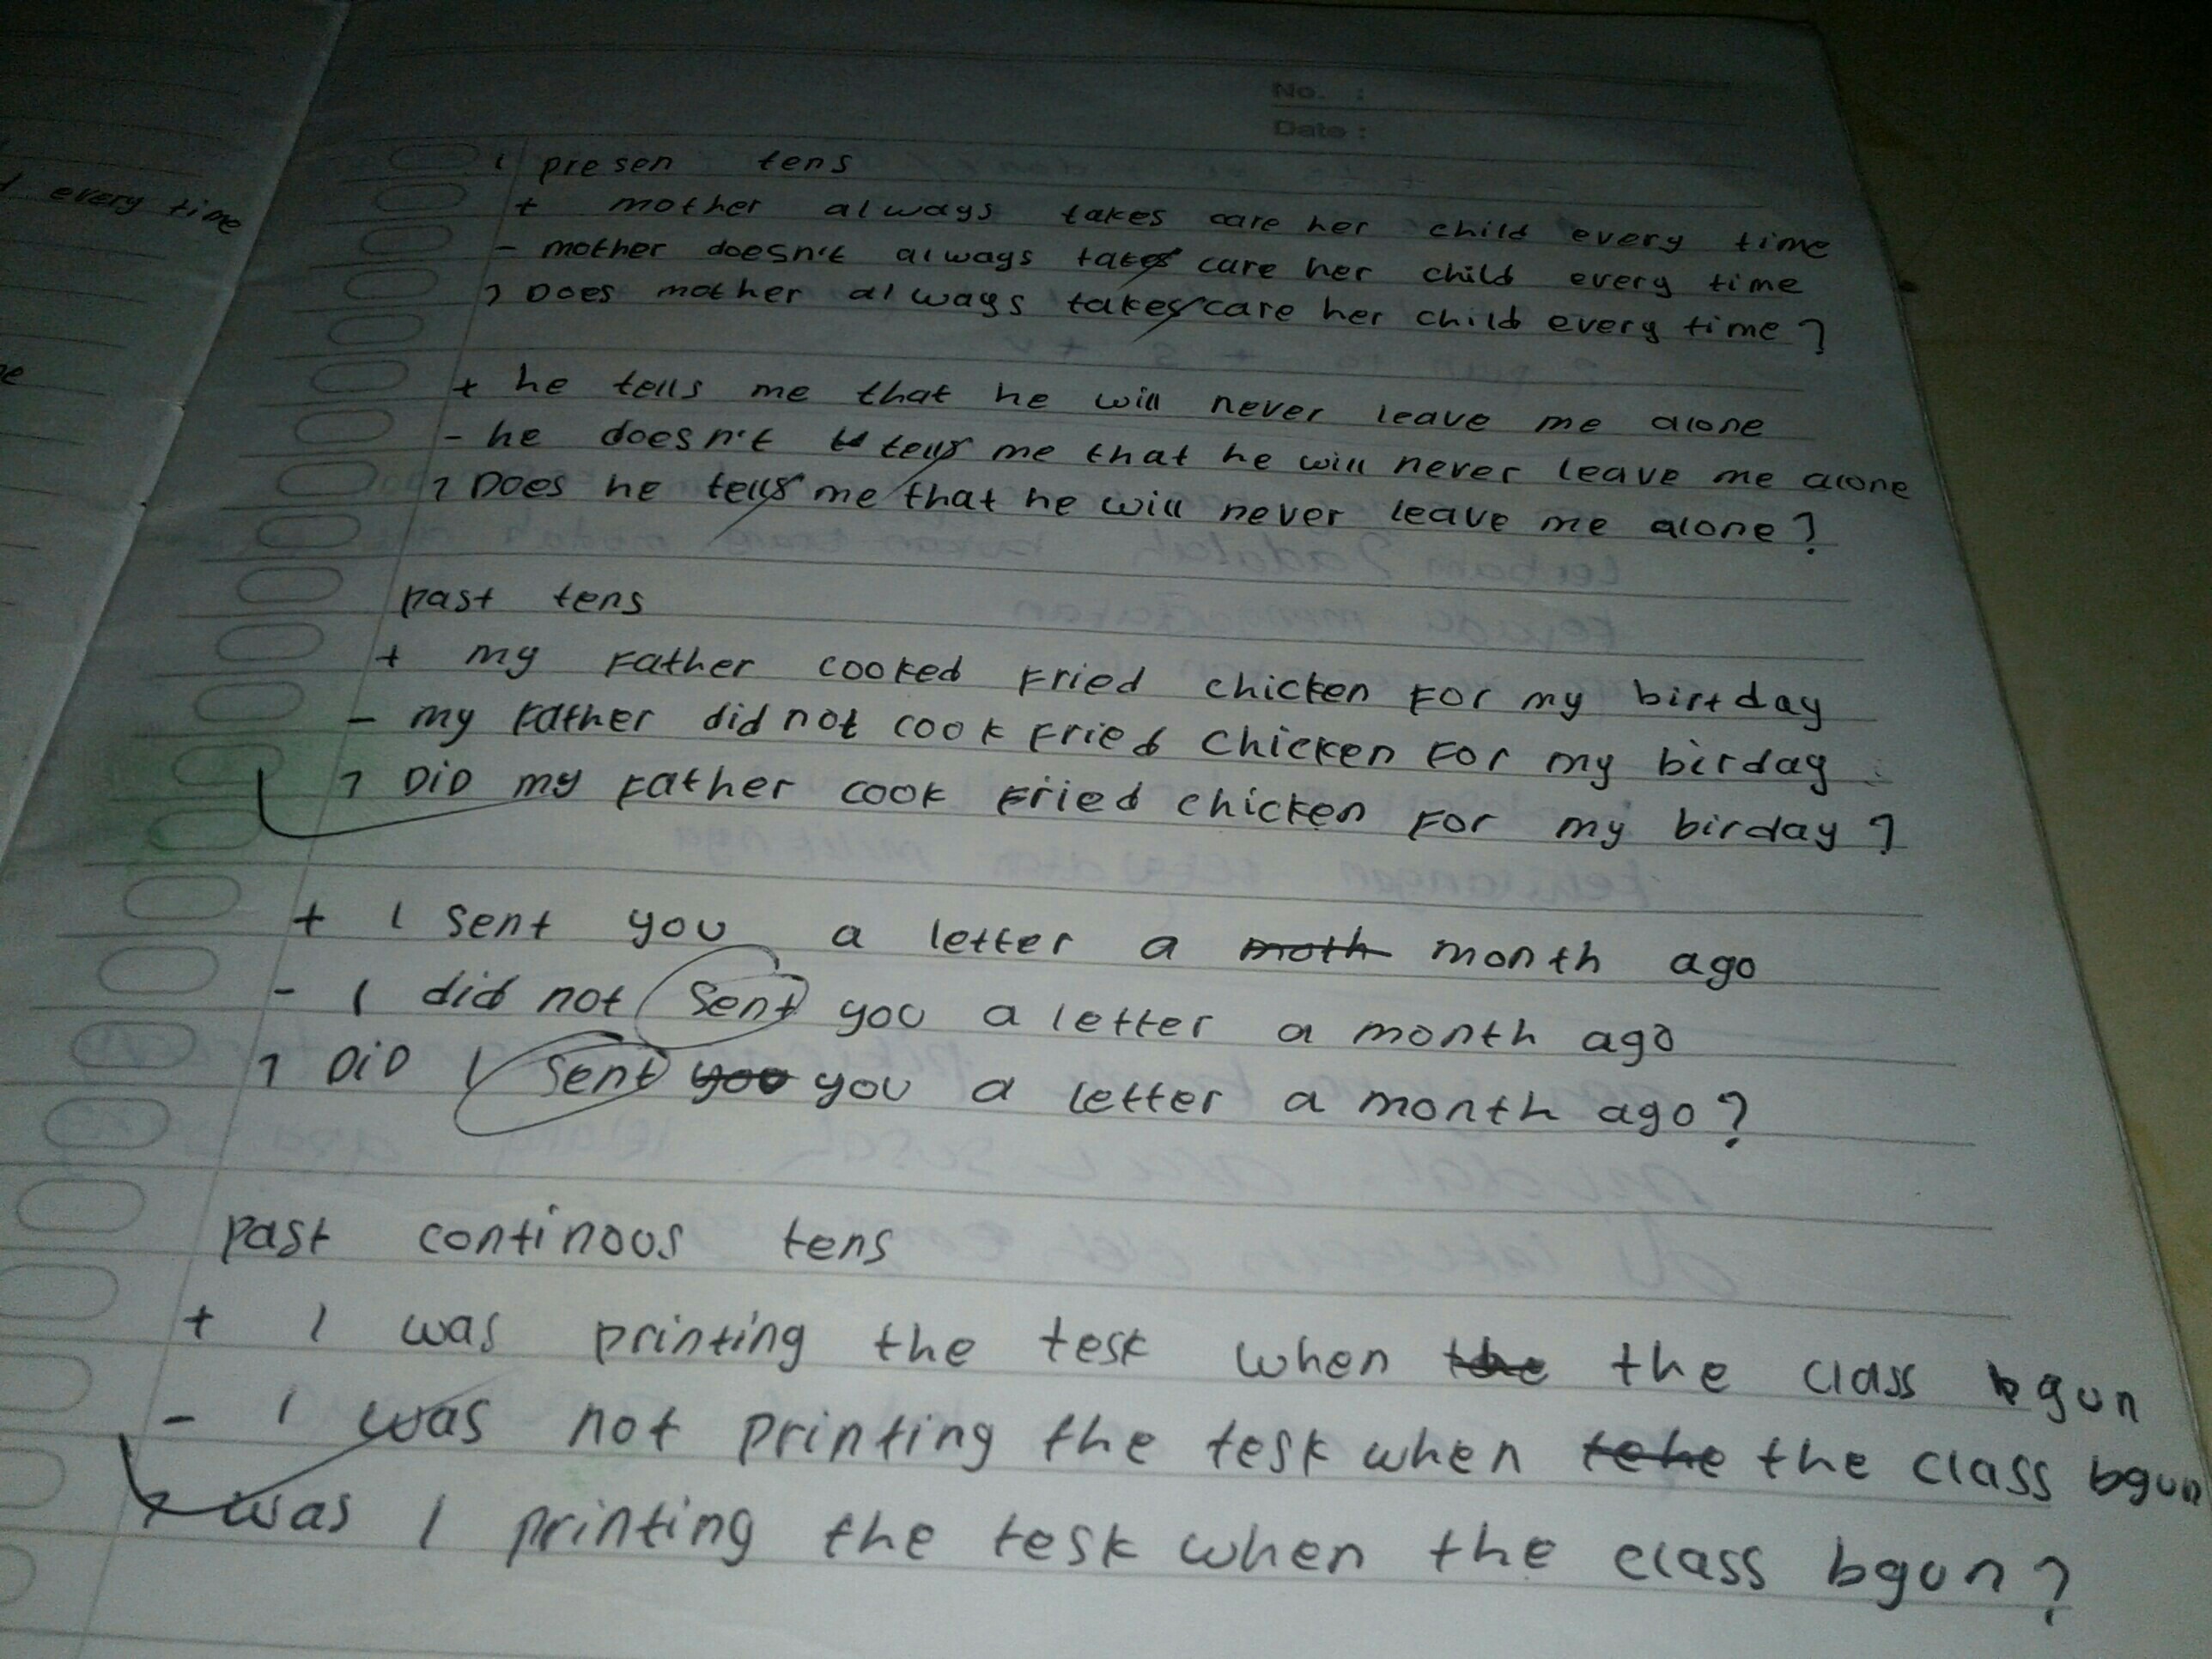 No. :
Date :
d every time
1 presen tens
+ mother always takes care her child every time
- mother doesn't always takes care her child every time
? Does mother always takes care her child every time?
+ he tells me that he will never leave me alone
- he doesn't tells me that he will never leave me alone
? Does he tells me that he will never leave me alone?
past tens
+ my Father cooked Fried chicken For my birtday
- my Father did not cook Fried chicken For my birday
? DiD my Father cook Fried chicken For my birday?
+ I sent you a letter a moth month ago
- I did not sent you a letter a month ago
? DiD I sent you you a letter a month ago?
past continous tens
+ I was printing the tesk when the the class bgun
- I was not printing the tesk when tehe the class bgun
? was I printing the tesk when the class bgun?